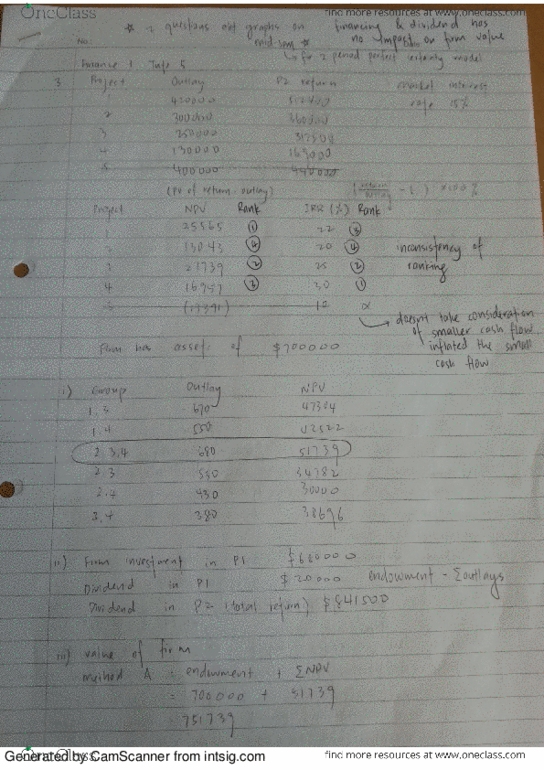 OneClass
find more resources at www.oneclass.com
* 2 questions on graphs on mid sem *
financing & dividend has
no impact on firm value
for 2 period perfect certainty model
Finance 1 Tute 5
3 Project Outlay P2 return market interest
1 420000 512400 rate 15%
2 300000 360000
3 250000 312500
4 130000 169000
5 400000 440000
(PV of return - outlay) (return/outlay - 1) x100%
Project NPV Rank IRR (%) Rank
1 25565 1 22 3
2 13043 4 20 4 inconsistency of
3 21739 2 25 2 ranking
4 16957 3 30 1
5 (17391) 10 x
doesn't take consideration
of smaller cash flow
inflated the small
cash flow
Firm has assets of $700000
i) Group Outlay NPV
1,3 670 47304
1,4 550 42522
2,3,4 680 51739
2,3 550 34782
2,4 430 30000
3,4 380 38696
ii) Firm investment in P1 $680000
Dividend in P1 $20000 endowment - Σoutlays
Dividend in P2 (total return) $841500
iii) value of firm
method A = endowment + ΣNPV
= 700000 + 51739
= 751739
Generated by CamScanner from intsig.com
find more resources at www.oneclass.com